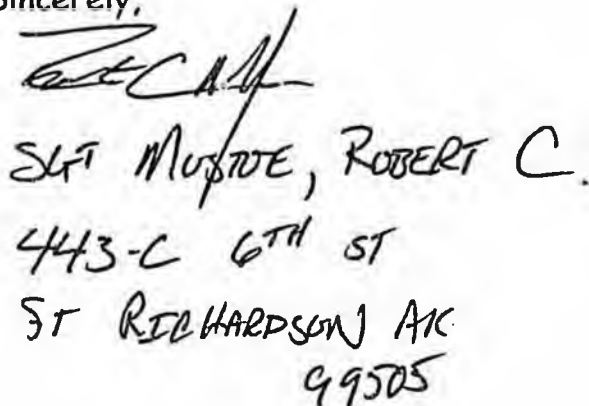 Sincerely,
SGT MUSTOE, ROBERT C.
443-C 6TH ST
FT RICHARDSON AK
99505